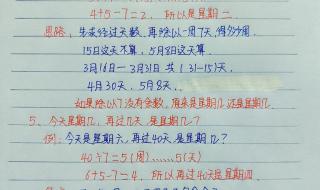 4+5-7=2, 所以是星期二.
思路: 先求经过天数, 再除以一周7天, 得多少周.
15日这天不算, 5月8日这天算.
3月16日—3月31日 共(31-15)天.
4月30天, 5月8天.
如果除以7没有余数, 原来是星期几还是星期几.
5、今天是星期几, 再过几天, 是星期几?
例: 今天是星期六, 再过40天是星期几?
40÷7=5(周)……5(天)
6+5-7=4, 所以再过40天是星期四.